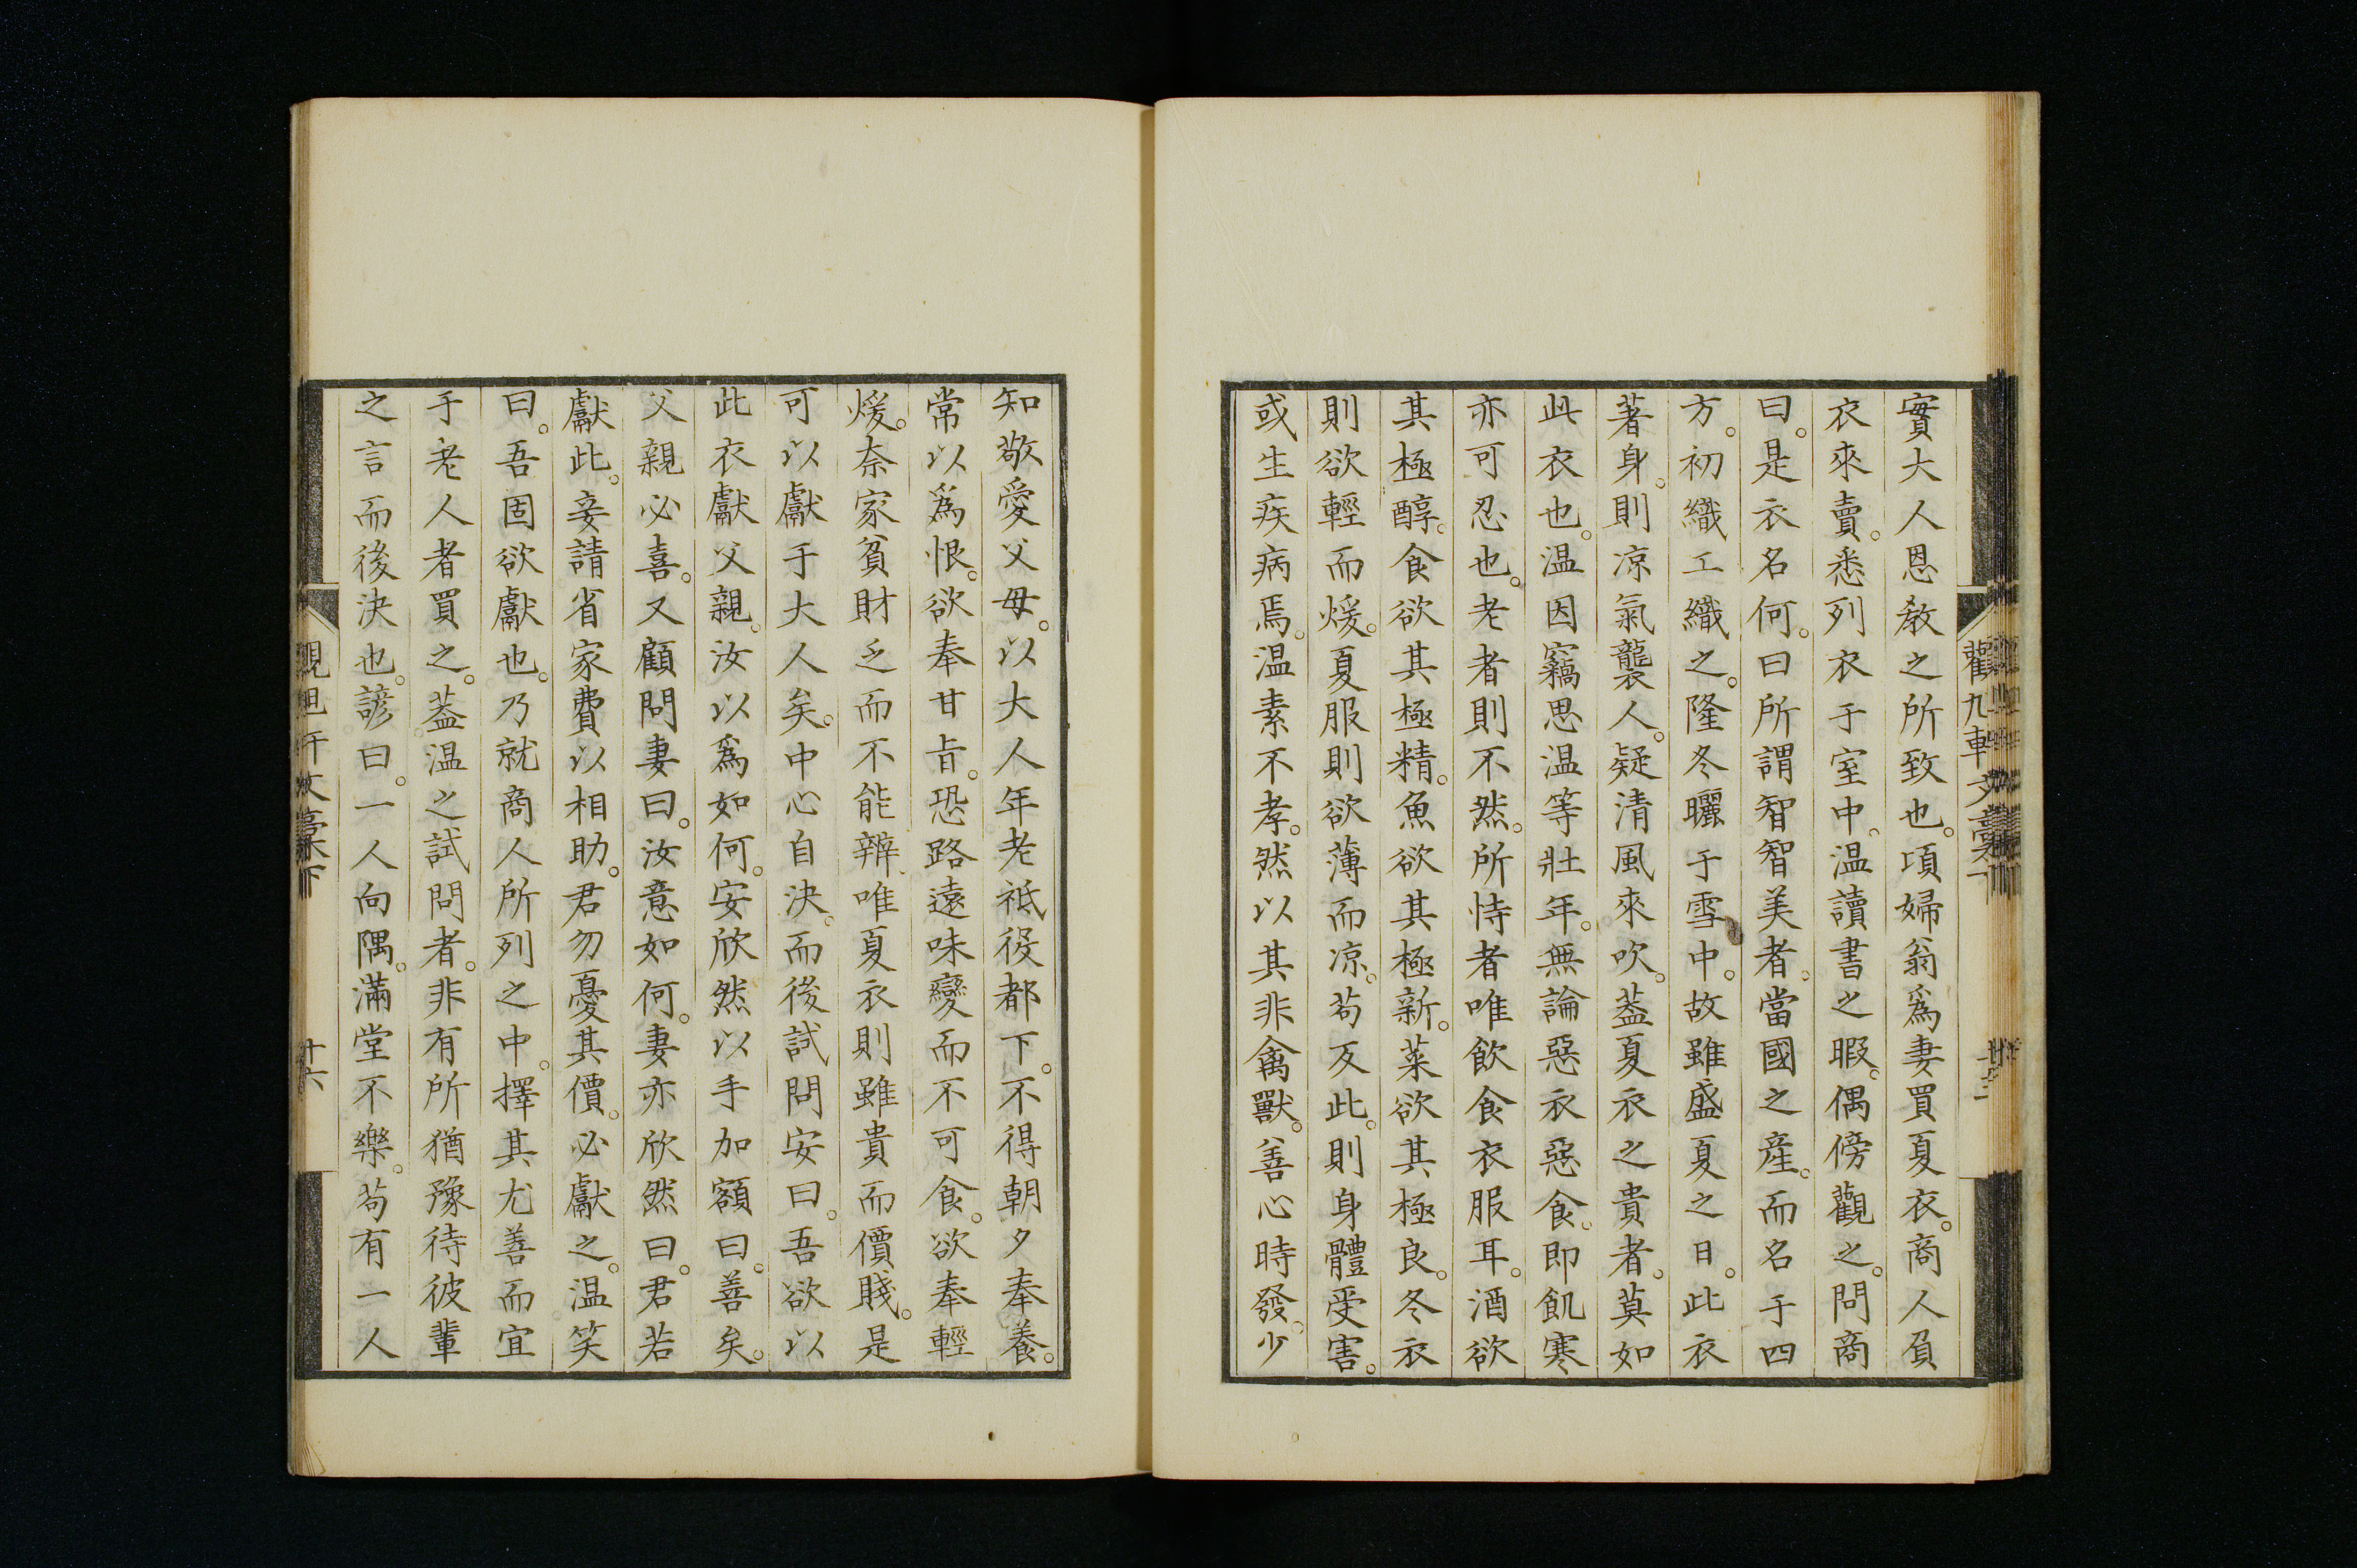 實大人恩敎之所致也。項婦翁爲妻買夏衣。商人負
衣來賣。悉列衣于室中。温讀書之暇。偶傍觀之。問商
曰。是衣名何。曰所謂智智美者。當國之産。而名于四
方。初織工織之。隆冬曬于雪中。故雖盛夏之日。此衣
著身。則凉氣襲人。疑清風來吹。葢夏衣之貴者。莫如
此衣也。温因竊思温等壯年。無論惡衣惡食。即飢寒
亦可忍也。老者則不然。所恃者唯飲食衣服耳。酒欲
其極醇。食欲其極精。魚欲其極新。菜欲其極良。冬衣
則欲輕而煖。夏服則欲薄而凉。苟反此。則身體受害。
或生疾病焉。温素不孝。然以其非禽獸。善心時發。少
知敬愛父母。以大人年老祗役都下。不得朝夕奉養。
常以爲恨。欲奉甘旨。恐路遠味變而不可食。欲奉輕
煖。奈家貧財乏而不能辨。唯夏衣則雖貴而價賤。是
可以獻于大人矣。中心自決。而後試問安曰。吾欲以
此衣獻父親。汝以爲如何。安欣然以手加額曰。善矣。
父親必喜。又顧問妻曰。汝意如何。妻亦欣然曰。君若
獻此。妾請省家費以相助。君勿憂其價。必獻之。温笑
曰。吾固欲獻也。乃就商人所列之中。擇其尤善而宜
于老人者買之。葢温之試問者。非有所猶豫待彼輩
之言而後決也。諺曰。一人向隅。滿堂不樂。苟有一人
十六